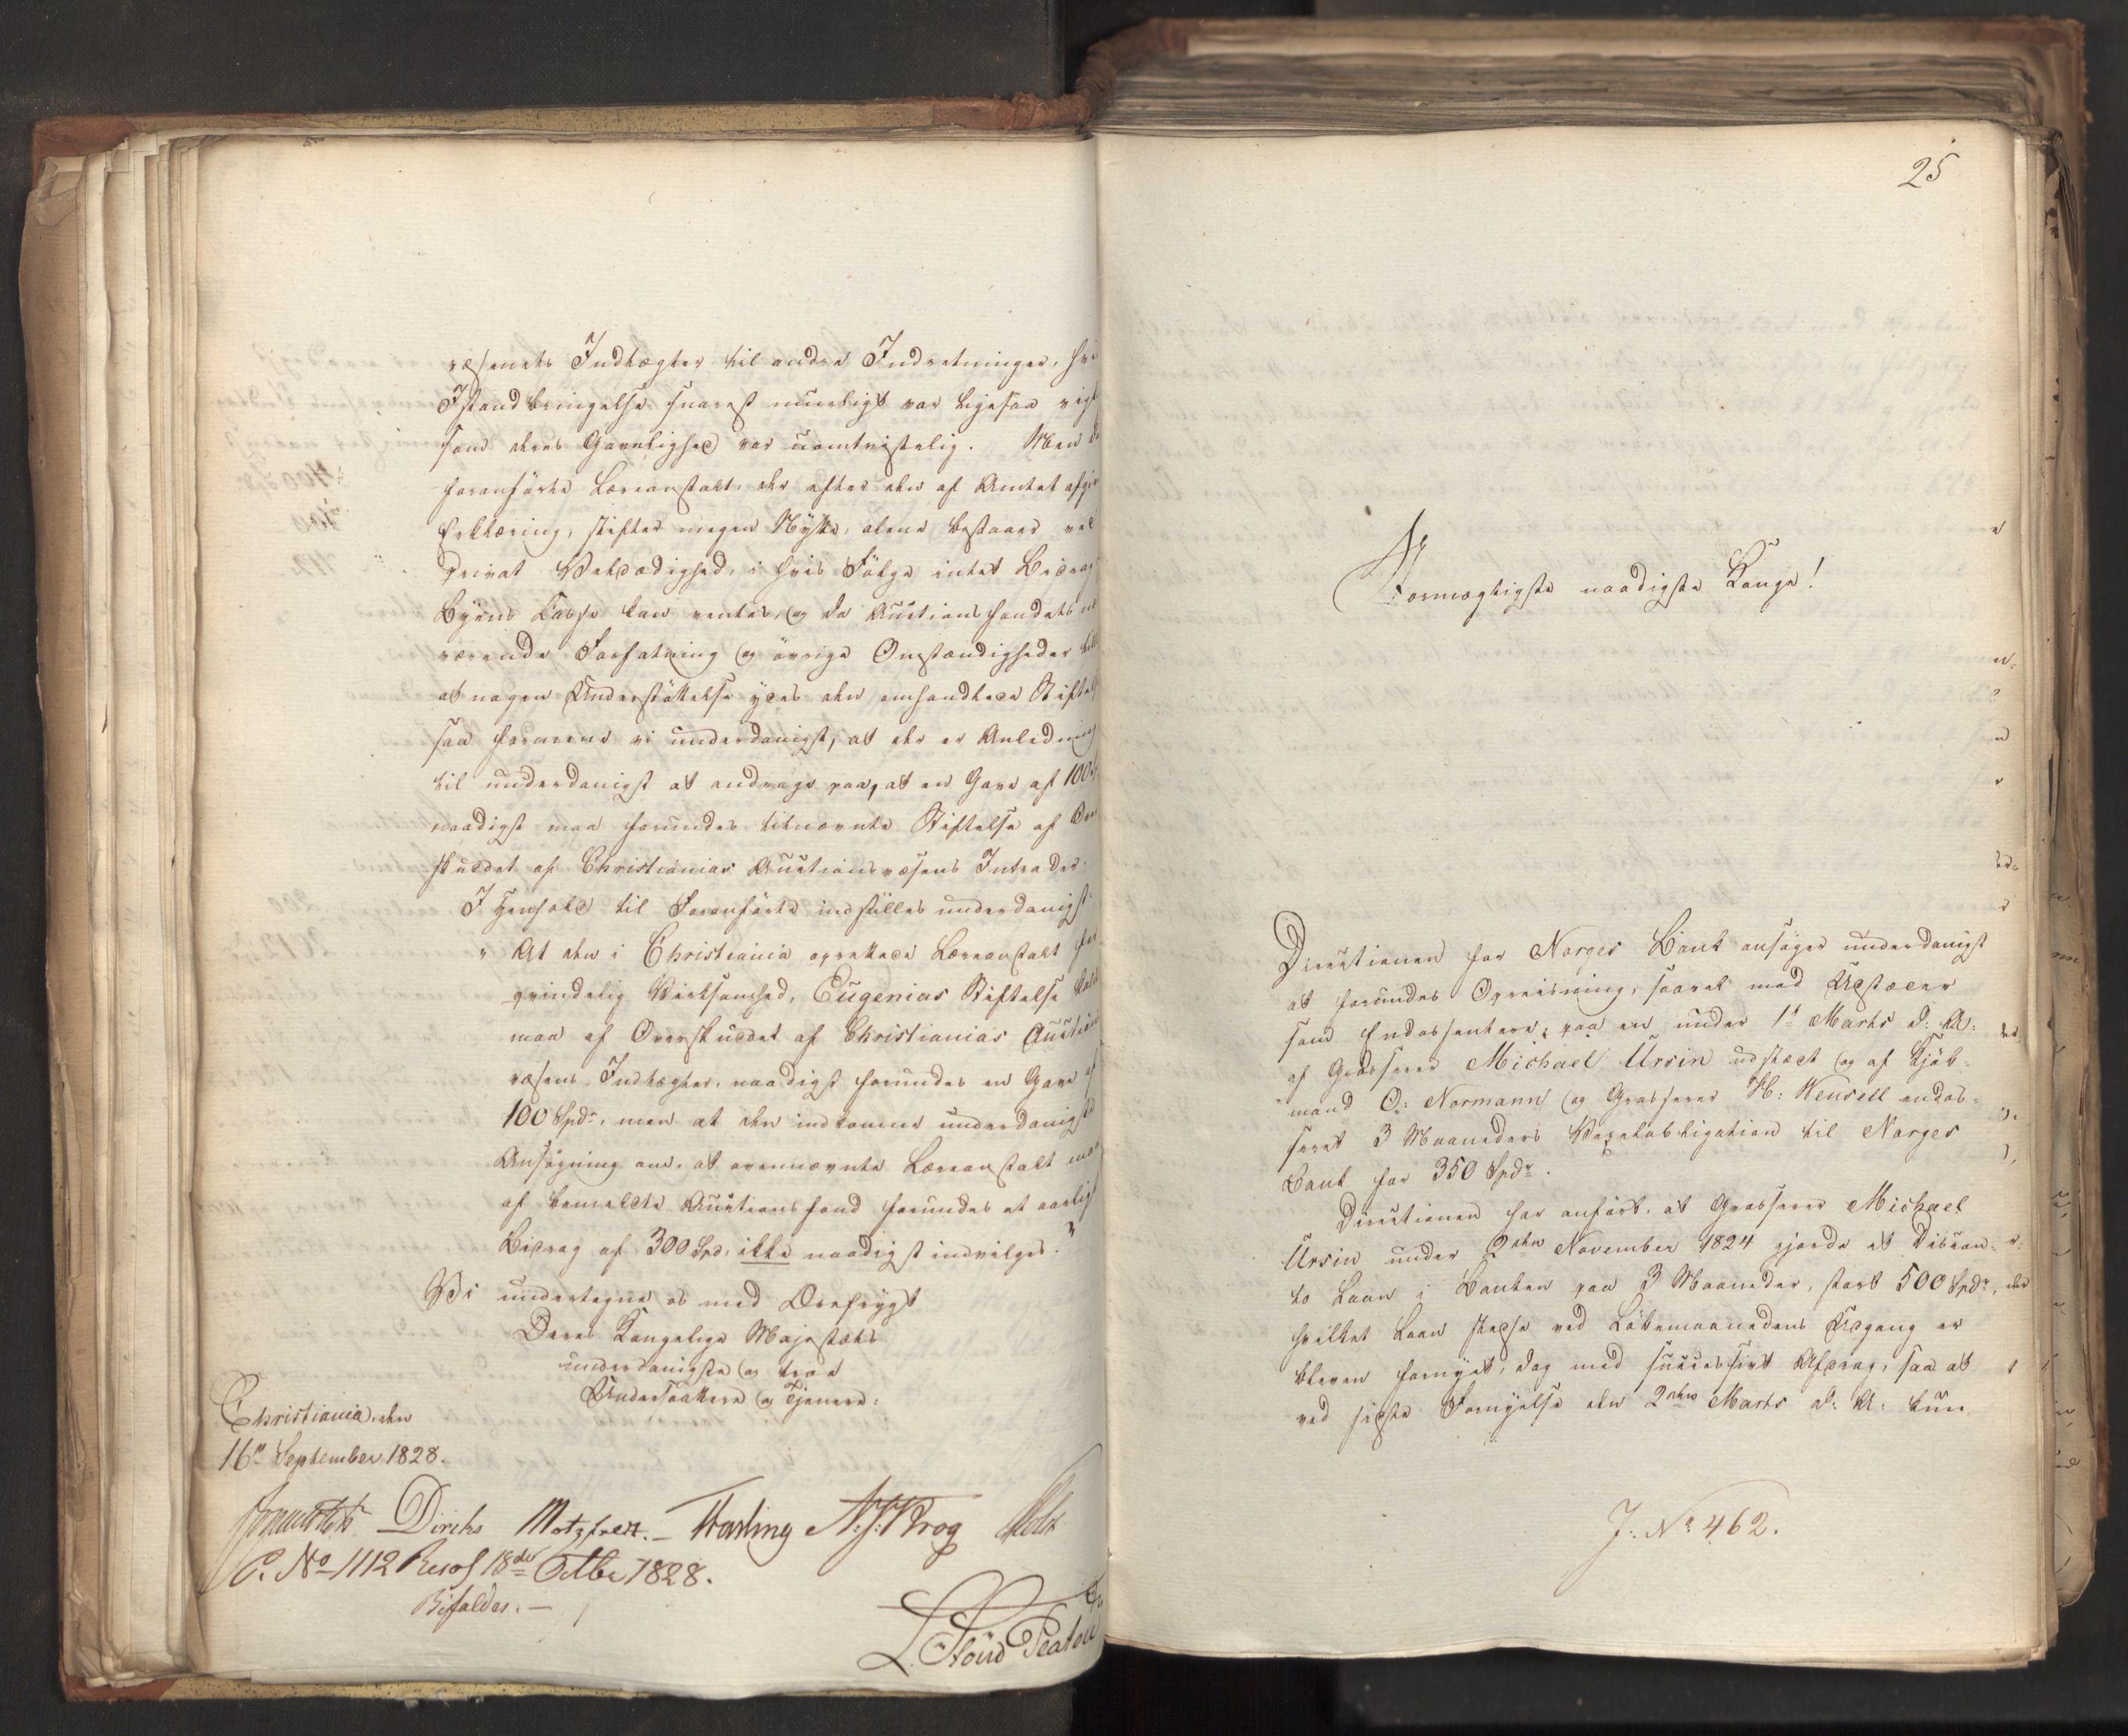 væsenets Indtægter til andre Indretninger, hvi
Istandbringelse snarest mueligt var ligesaa vigt
som deres Gavnlighed var uomtvistelig. Men da
foranførte Læreanstalt, der efter den af Amtet afgiv
Erklæring, stifter megen Nytte, alene bestaaer ved
privat Veldædighed, i hvis Følge intet Bidrag
Byens Casse kan ventes, og da Auctionsfondets nu
værende Forfatning og øvrige Omstændigheder till
at nogen Understøttelse ydes den omhandlede Stiftel
saa formene vi underdanigst, at der er Anledning
til underdanigst at andrage paa, at en Gave af 100
naadigst maa forundes bitnævnte Stiftelse af Over
skuddet af Christianias Auctionsvæsens Intrader.
I Henhold til Foranførte indstilles underdanigst:
" At den i Christiania oprettede Læreanstalt for
qvindelig Virksomhed, Eugenias Stiftelse kald
maa af Overskuddet af Christianias Auctions
væsens Indtægter, naadigst forundes en Gave af
100 Spdr, men at den indkomne underdanigste
Ansøgning om, at ovennævnte Læreanstalt maa
af bemeldte Auctionsfond forundes et aarligt
Bidrag af 300 Spd, ikke naadigst indvilges."
Vi undertegne os med Ærefrygt
Deres Kongelige Majestæts
underdanigste og troe
Undersaatter og Tjenere:
Christiania, den
16de September 1828.
Diriks Motzfeldt. Fasting N. J. Krog Holst
C. No 1112 Resol 18de Octbr 1828.
Bifaldes.
L. Stoud Platou
25
Stormægtigste naadigste Konge!
Directionen for Norges Bank ansøger underdanigst
at forundes Opreisning, saavel mod Udstæder
som Endossentere, paa en under 1st Marts d: A:
af Grosserer Michael Ursin udstædt og af Kjøb-
mand O: Normann og Grosserer H: Heusell endos-
seret 3 Maaneders Vexelobligation til Norges
Bank for 350 Spdr.
Directionen har anført, at Grosserer Michael
Ursin under 2den November 1824 gjorde et Discon-
to Laan i Banken paa 3 Maaneder, stort 500 Spdr,
hvilket Laan stedse ved Løbemaanedens Udgang er
bleven fornyet, dog med successivt Afdrag, saa at
ved sidste Fornyelse den 2den Marts d: A: kun
J: No 462.